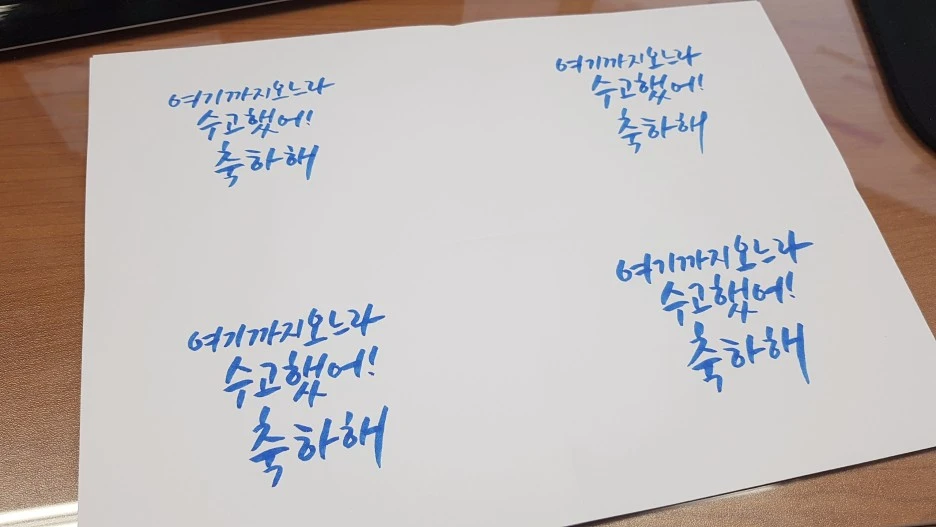 여기까지오느라
수고했어!
축하해
여기까지오느라
수고했어!
축하해
여기까지오느라
수고했어!
축하해
여기까지오느라
수고했어!
축하해